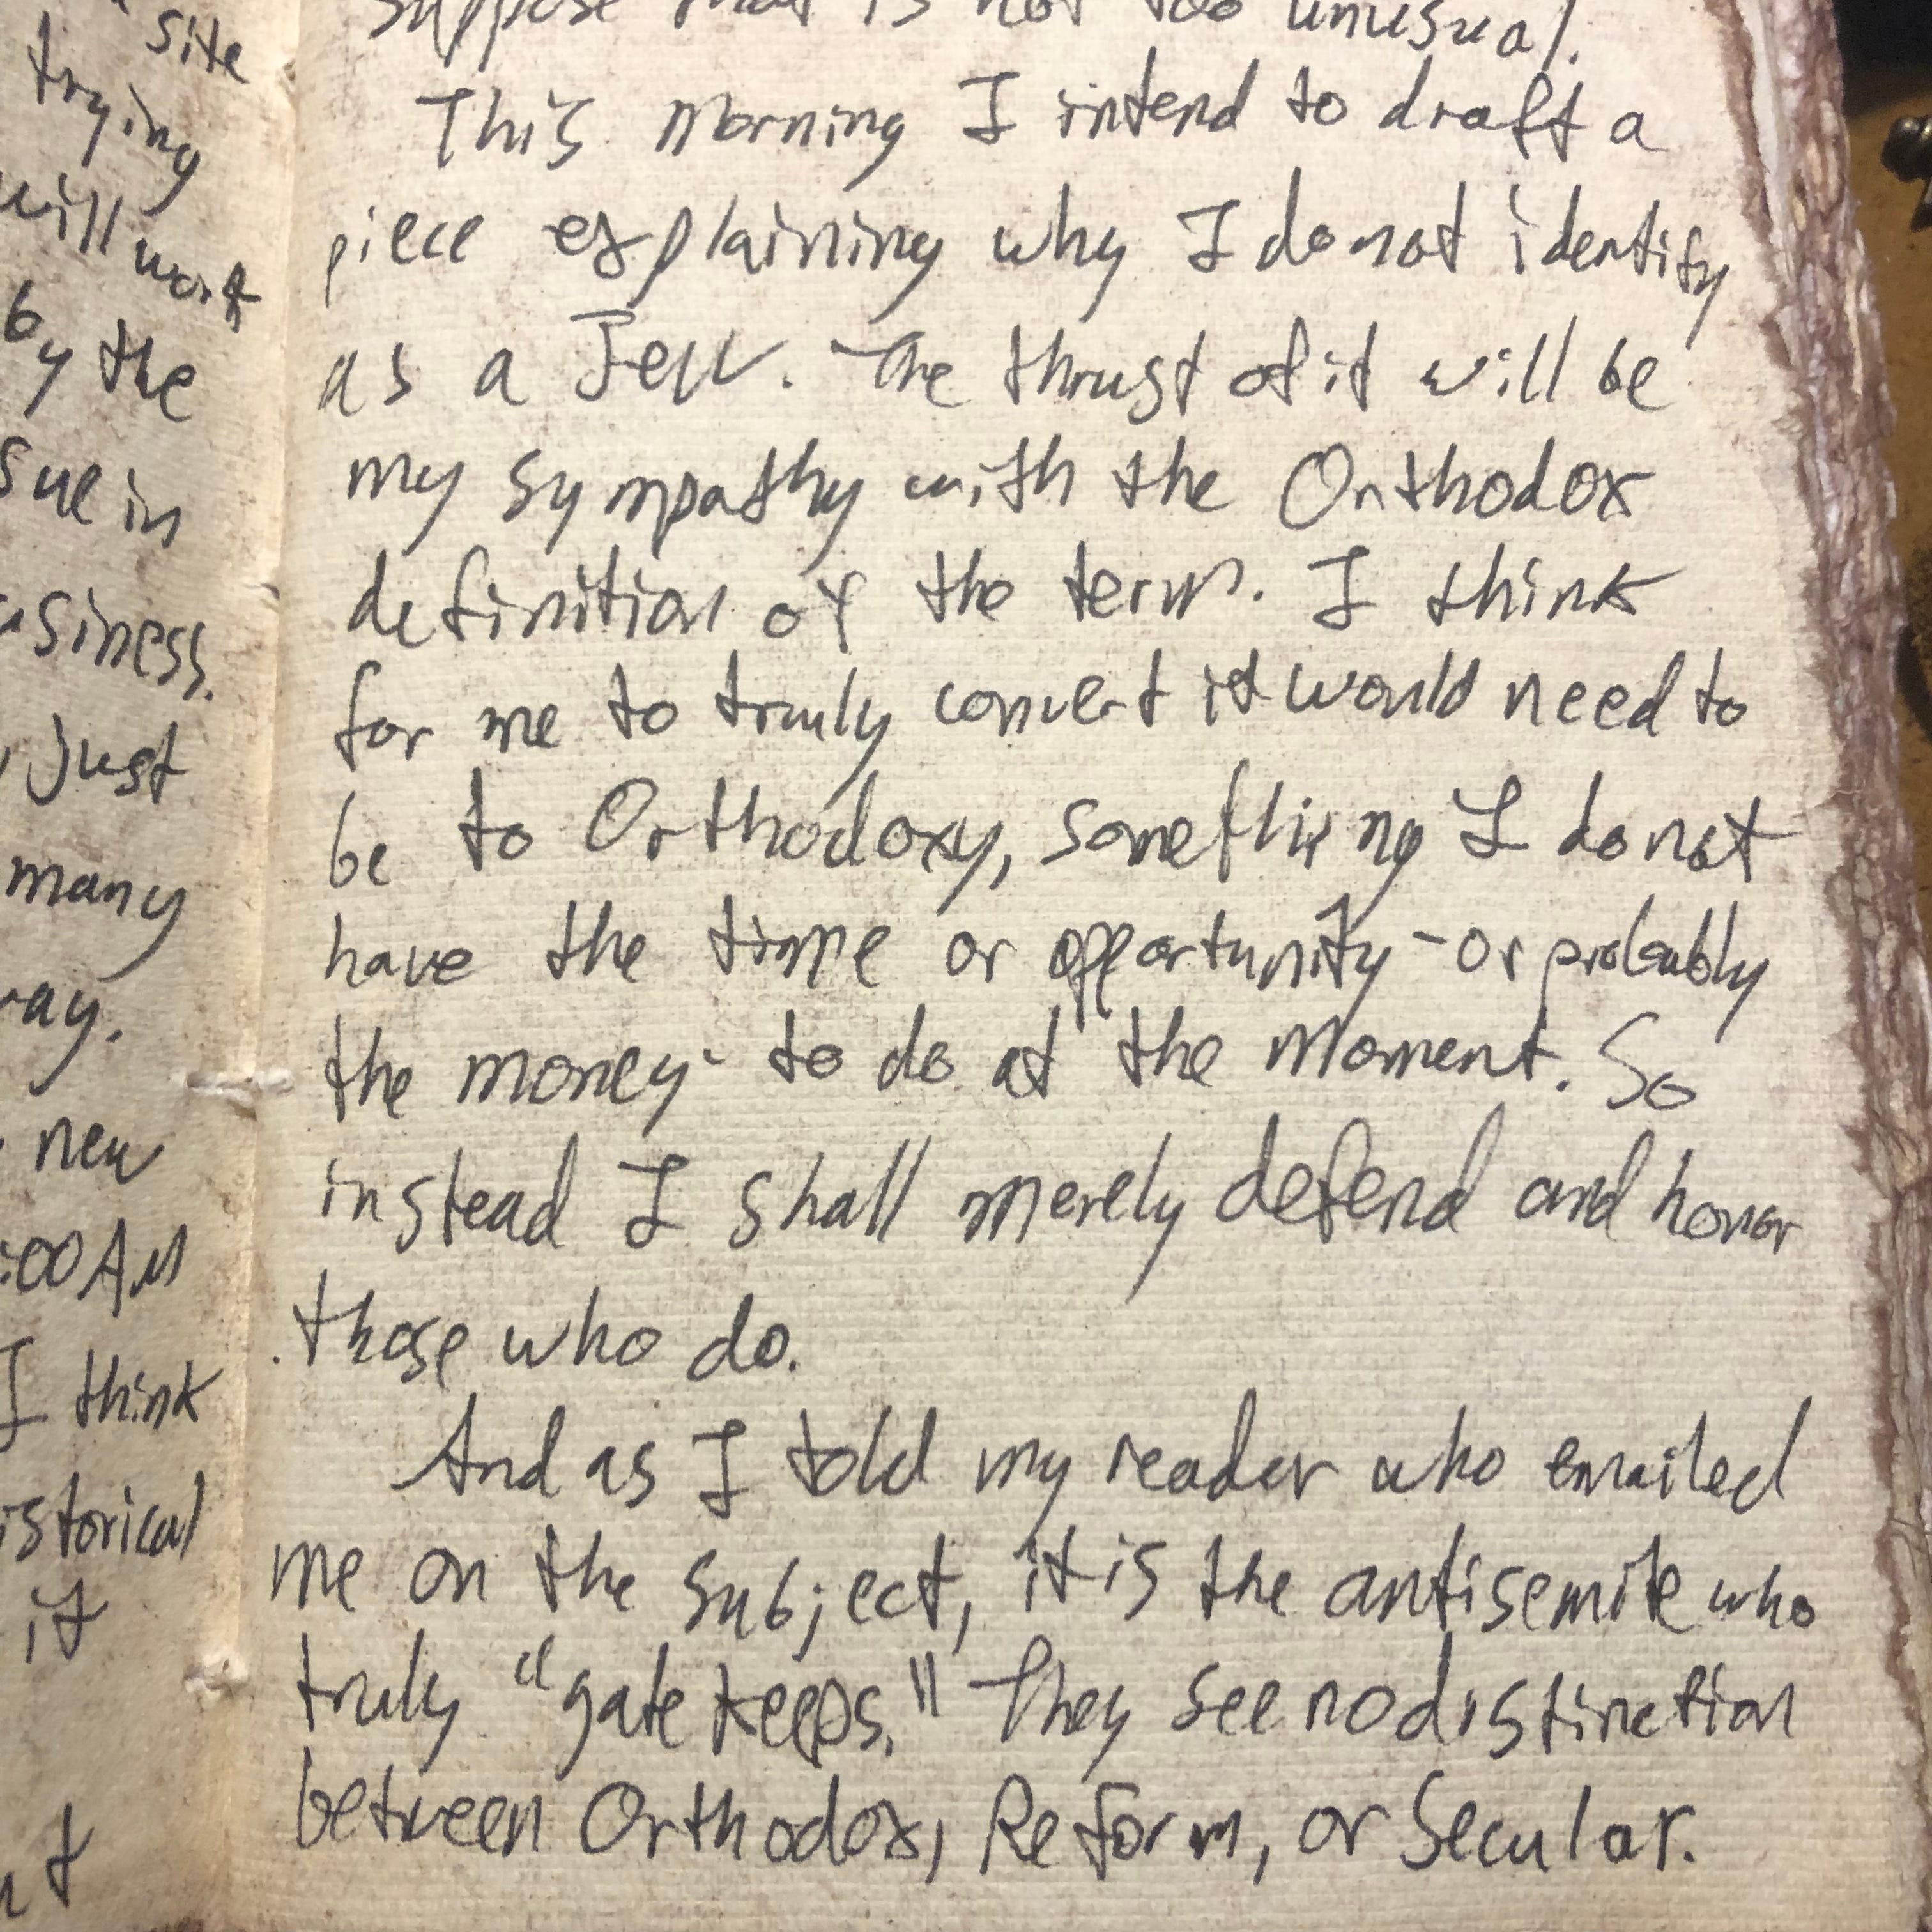 site
trying
will work
by the
sue in
siness.
Just
many
ay.
new
:00 AM
I think
istorical
it
suppose that is not too unusual.
This Morning I intend to draft a
piece explaining why I do not identify
as a Jew. The thrust of it will be
my sympathy with the Orthodox
definition of the term. I think
for me to truly convert it would need to
be to Orthodoxy, something I do not
have the time or opportunity - or probably
the money - to do at the Moment. So
instead I shall merely defend and honor
those who do.
And as I told my reader who emailed
me on the subject, it is the antisemite who
truly "gate keeps." They see no distinction
between Orthodox, Reform, or Secular.